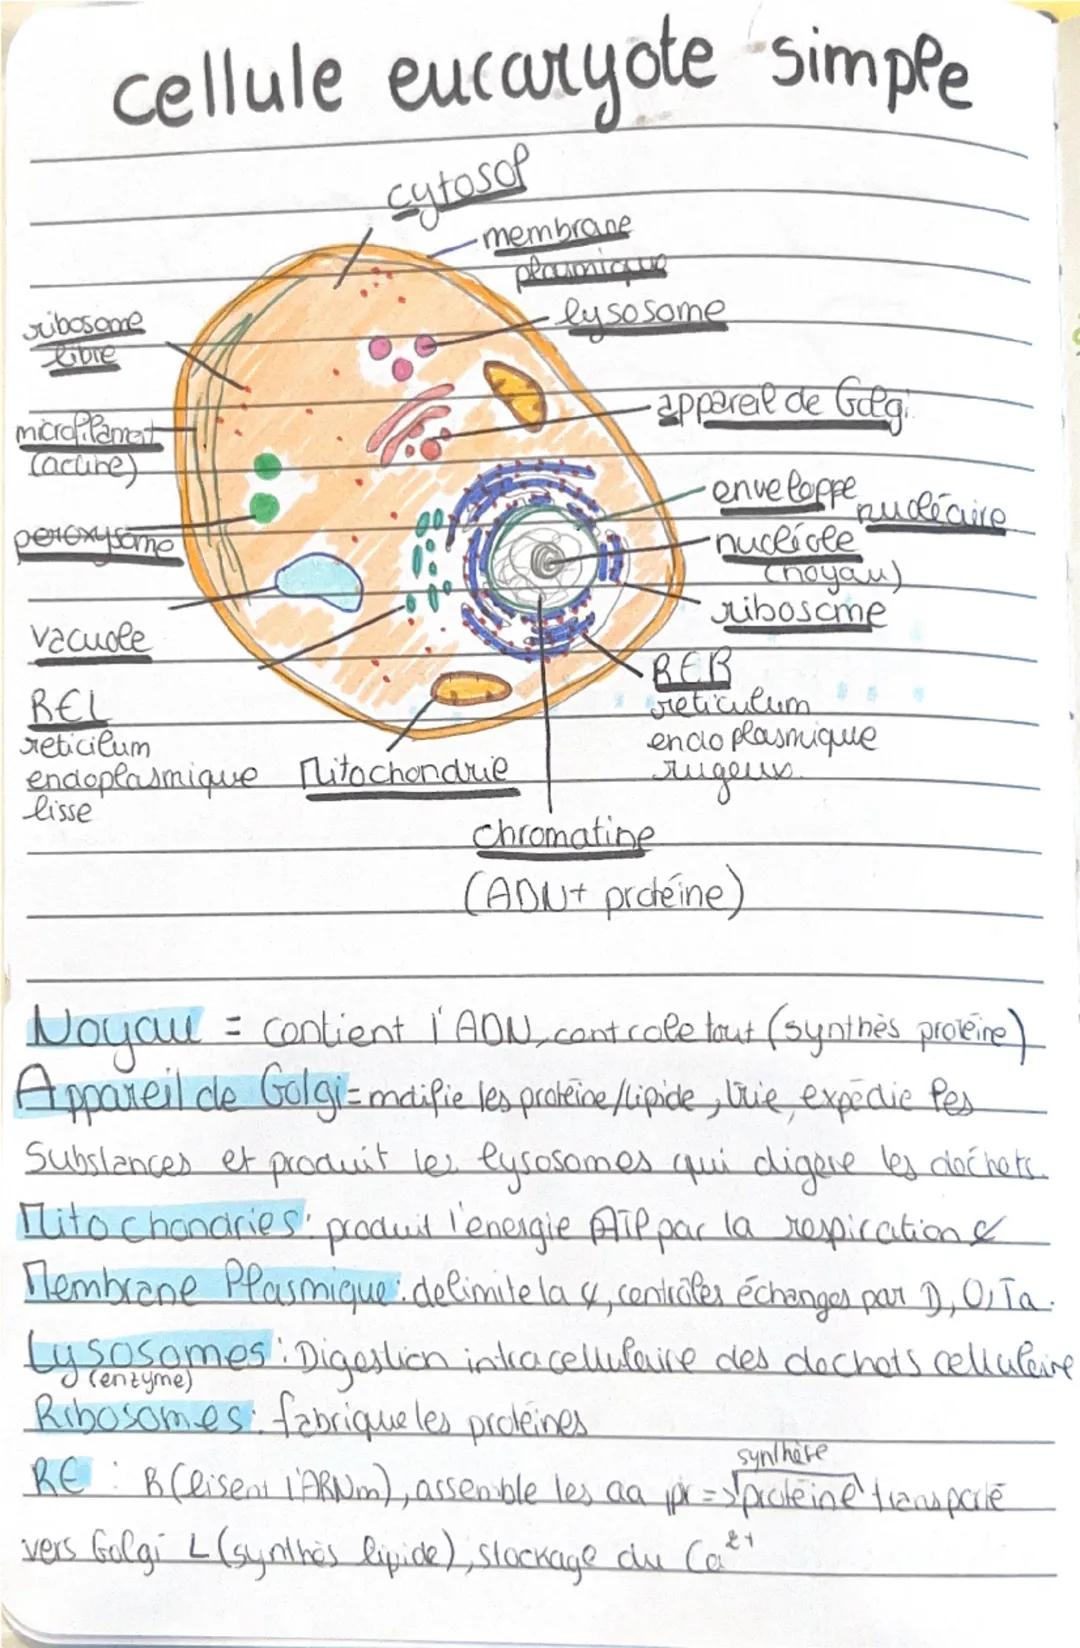 cellule eucaryote simple
cytosol
membrane
plasmique
lysosome
ribosome
libre
appareil de Golgi
microfilament
(actine)
enveloppe nucléaire
peroxysome
nucléole
(noyau)
ribosome
vacuole
RER
reticulum
endoplasmique
rugeux.
REL
reticilum
endoplasmique
lisse
Mitochondrie
chromatine
(ADN+ protéine)
Noyau = contient l'ADN, controle tout (synthès protéine)
Appareil de Golgi = modifie les protéine/lipide, trie, expédie les
Substances et produit les lysosomes qui digère les dechets.
Mitochondries: produit l'énergie ATP par la respiration
Membrane Plasmique: delimite la , contrôles échanges par D, O, Ta.
Lysosomes: Digestion intracellulaire des dechets cellulaire
(enzyme)
Ribosomes: fabrique les protéines
synthèse
RE : R (lisent l'ARNm), assemble les aa pr => protéine transporté
vers Golgi L (synthès lipide), stockage du Ca²⁺